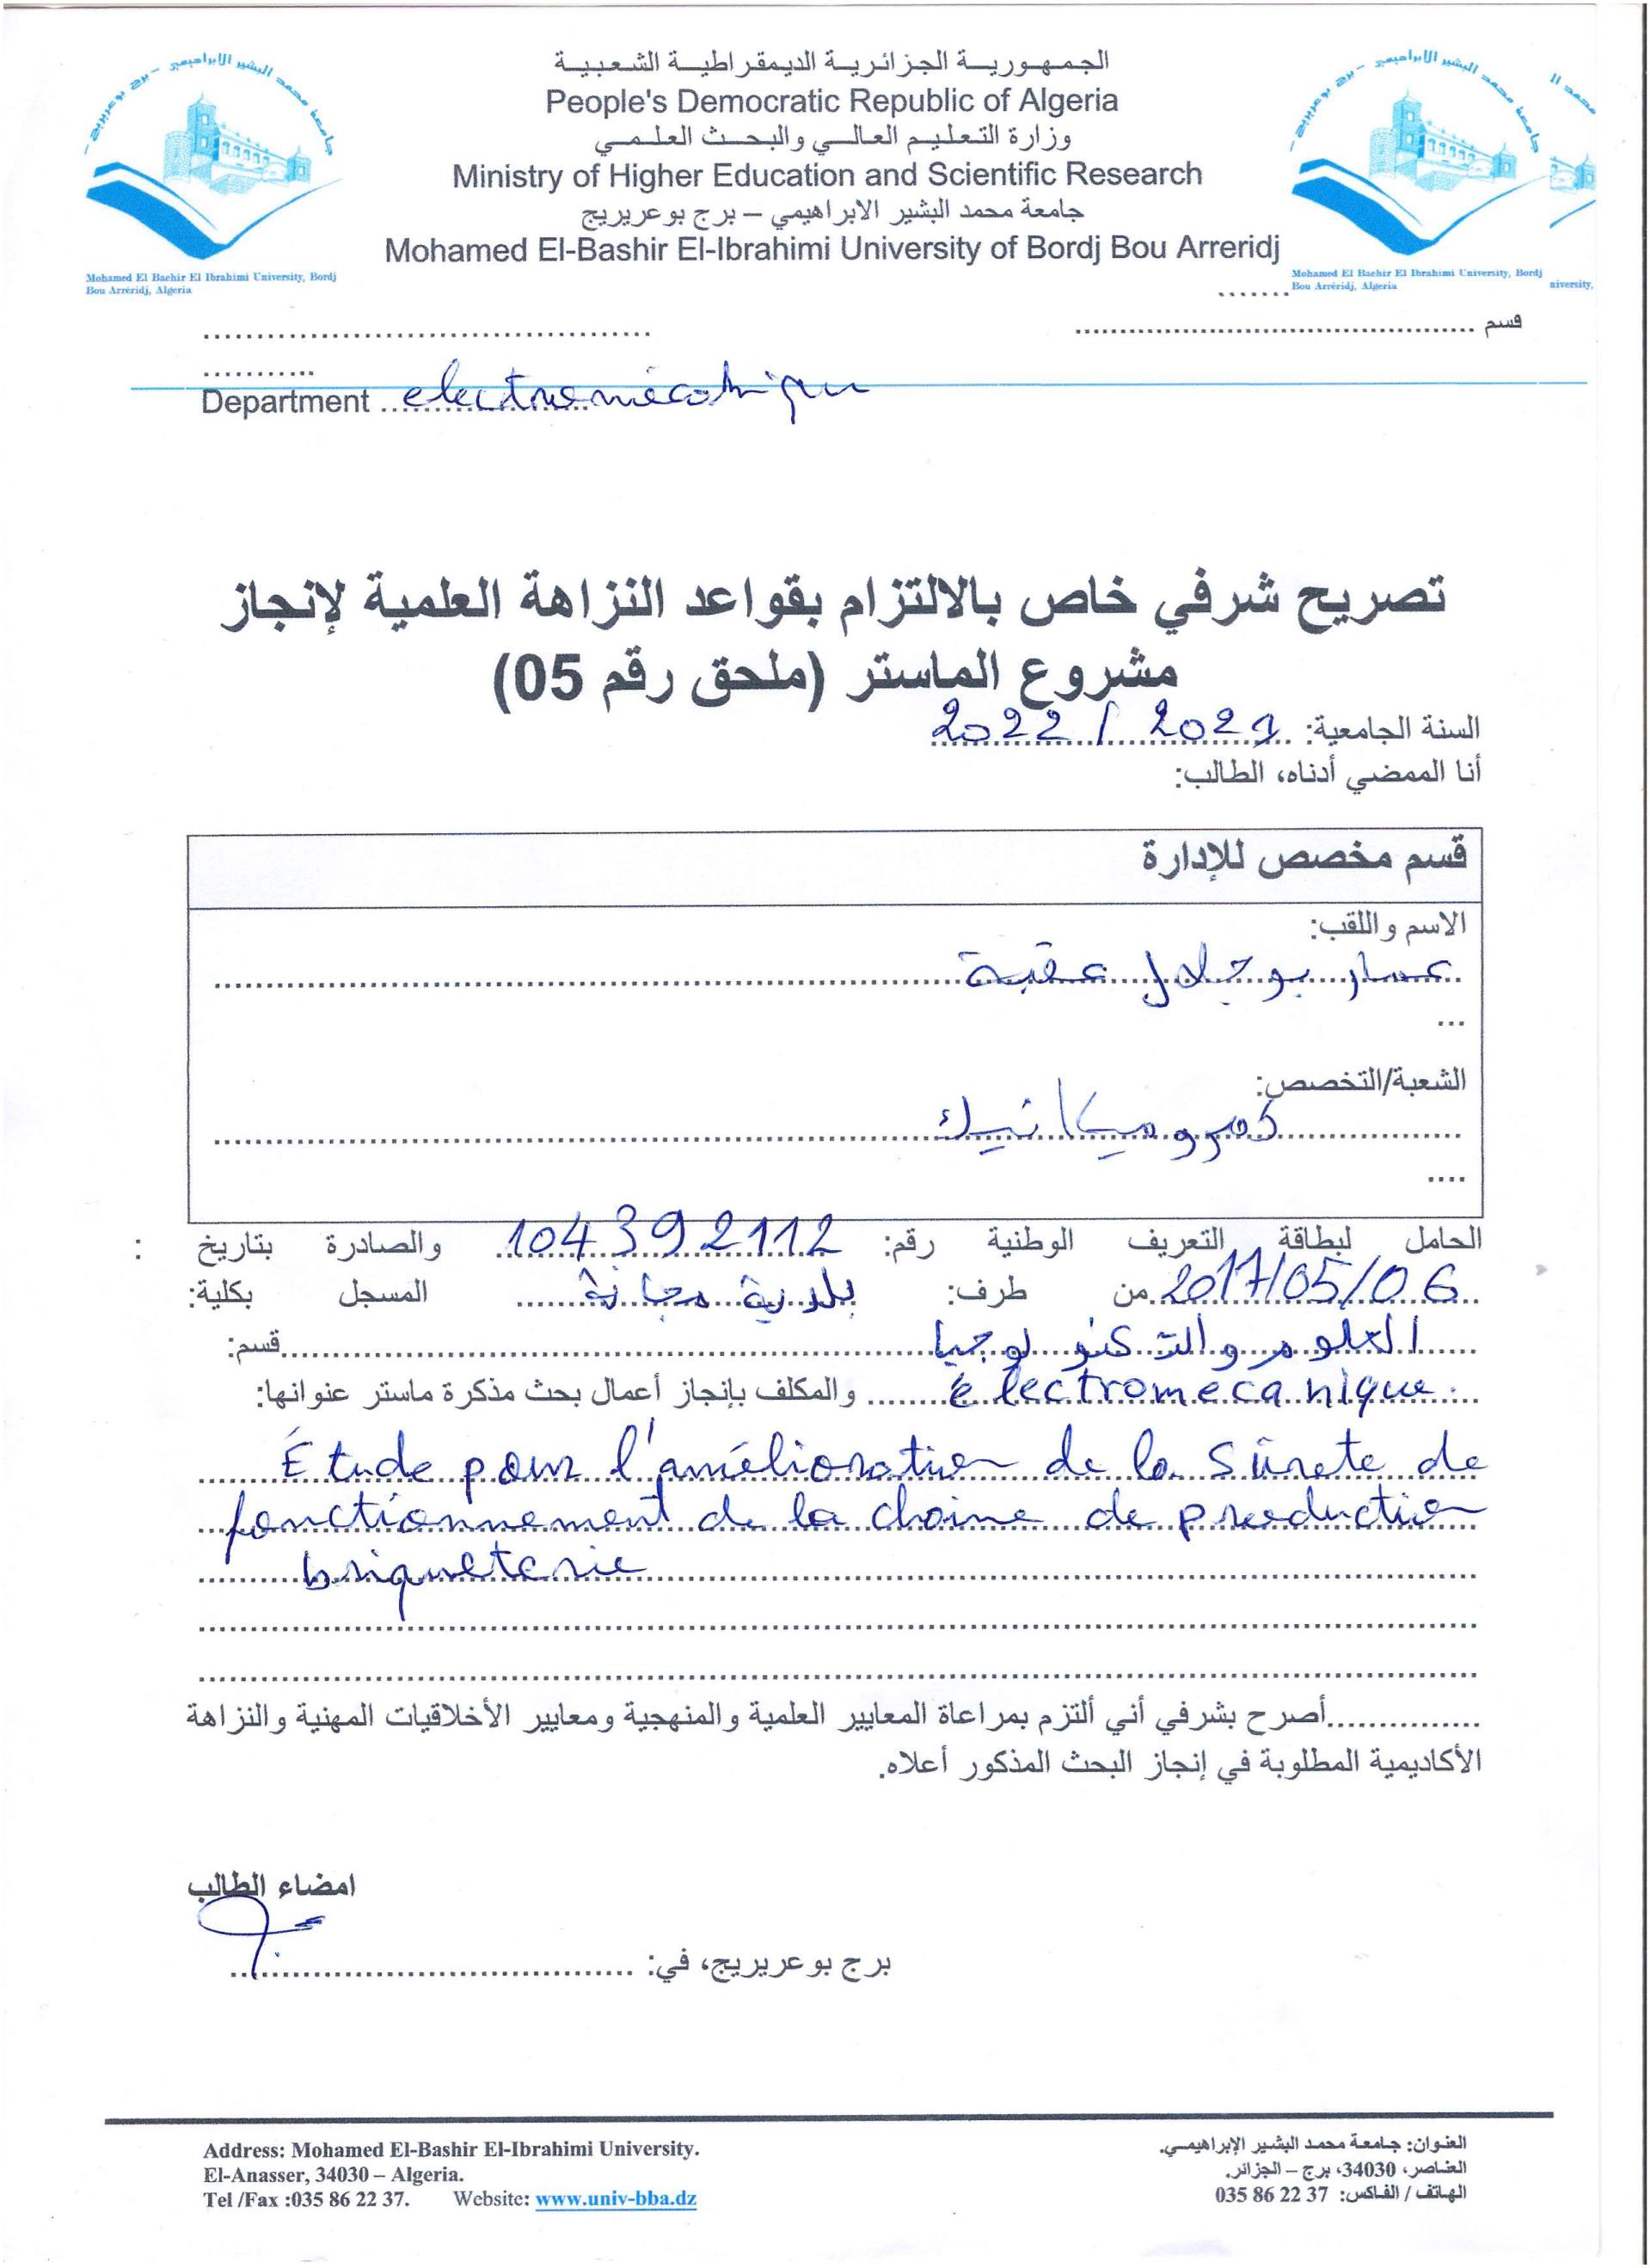 جامعة محمد البشير الابراهيمي – برج بوعريريج –
Mohamed El Bachir El Ibrahimi University, Bordj
Bou Arréridj, Algeria
الجمهورية الجزائرية الديمقراطية الشعبية
People's Democratic Republic of Algeria
وزارة التعليم العالي والبحث العلمي
Ministry of Higher Education and Scientific Research
جامعة محمد البشير الابراهيمي – برج بوعريريج
Mohamed El-Bashir El-Ibrahimi University of Bordj Bou Arreridj
جامعة محمد البشير الابراهيمي – برج بوعريريج –
Mohamed El Bachir El Ibrahimi University, Bordj
Bou Arréridj, Algeria
محمد ال
niversity,
قسم ............................................
Department electromécanique
تصريح شرفي خاص بالالتزام بقواعد النزاهة العلمية لإنجاز
مشروع الماستر (ملحق رقم 05)
السنة الجامعية: 2021 / 2022
أنا الممضي أدناه، الطالب:
قسم مخصص للإدارة
الاسم واللقب:
عمار بوجلال عقبة
الشعبة/التخصص:
كهروميكانيك
الحامل لبطاقة التعريف الوطنية رقم: 104392112 والصادرة بتاريخ :
2017/05/06 من طرف: بلدية مجانة المسجل بكلية:
العلوم والتكنولوجيا قسم:
électromecanique والمكلف بإنجاز أعمال بحث مذكرة ماستر عنوانها:
Étude pour l'amélioration de la sûrete de
fonctionnement de la chaine de production
briqueterie
...............أصرح بشرفي أني ألتزم بمراعاة المعايير العلمية والمنهجية ومعايير الأخلاقيات المهنية والنزاهة
الأكاديمية المطلوبة في إنجاز البحث المذكور أعلاه.
امضاء الطالب
برج بوعريريج، في: ......................................
Address: Mohamed El-Bashir El-Ibrahimi University.
El-Anasser, 34030 – Algeria.
Tel /Fax :035 86 22 37. Website: www.univ-bba.dz
العنوان: جامعة محمد البشير الإبراهيمي.
العناصر، 34030، برج – الجزائر.
الهاتف / الفاكس: 37 22 86 035